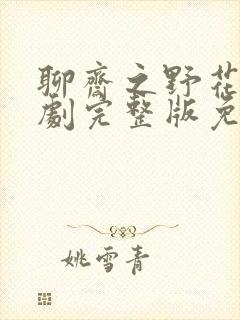 聊齋之野花
劇完整版免
姚雪青